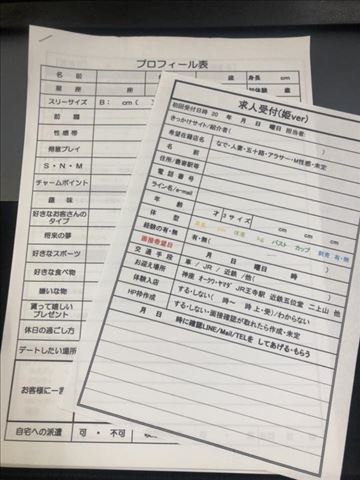 プロフィール表
名前
歳
身長
cm
星座
座
体験
歳
スリーサイズ
B: cm (
前職
性感帯
得意プレイ
S・N・M
チャームポイント
趣味
好きなお客さんのタイプ
将来の夢
好きなスポーツ
好きな食べ物
嫌いな物
貰って嬉しいプレゼント
休日の過ごし方
デートしたい場所
お客様に一言
自宅への派遣
可・不可
求人受付(姫ver)
初回受付日時 20 年 月 日 曜日 担当者:
きっかけサイト/紹介者(
希望在籍店名 なで・人妻・五十路・アラサー・M性感・未定
名前
住所/最寄駅等
電話番号
ライン名/e-mail
年齢 才 3サイズ
体型 cm 体重 kg バスト カップ 刺青 有・無
経験の有・無 有・無(
面接希望日 月 日 曜日 時 )
交通手段 車 / JR / 近鉄 /他(
お迎え場所 神座 オークワ・ヤマダ JR王寺駅 近鉄五位堂 二上山 他
体験入店 する・しない( 時〜 時 上・受)/わからない
HP枠作成 する・しない・面接確認が取れたら作成・未定
月 日 時に確認LINE/Mail/TELを してあげる・もらう